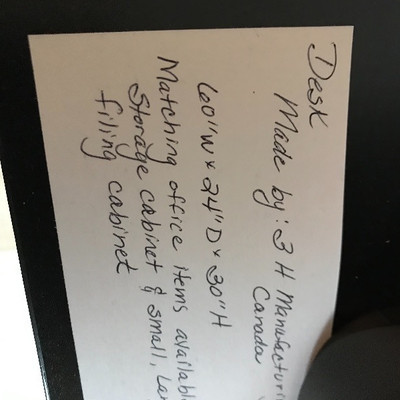 Desk
Made by: 3 H Manufacturi
Canada
60"W x 24"D x 30"H
Matching office items availabl
Storage cabinet & small, Lar
filing cabinet